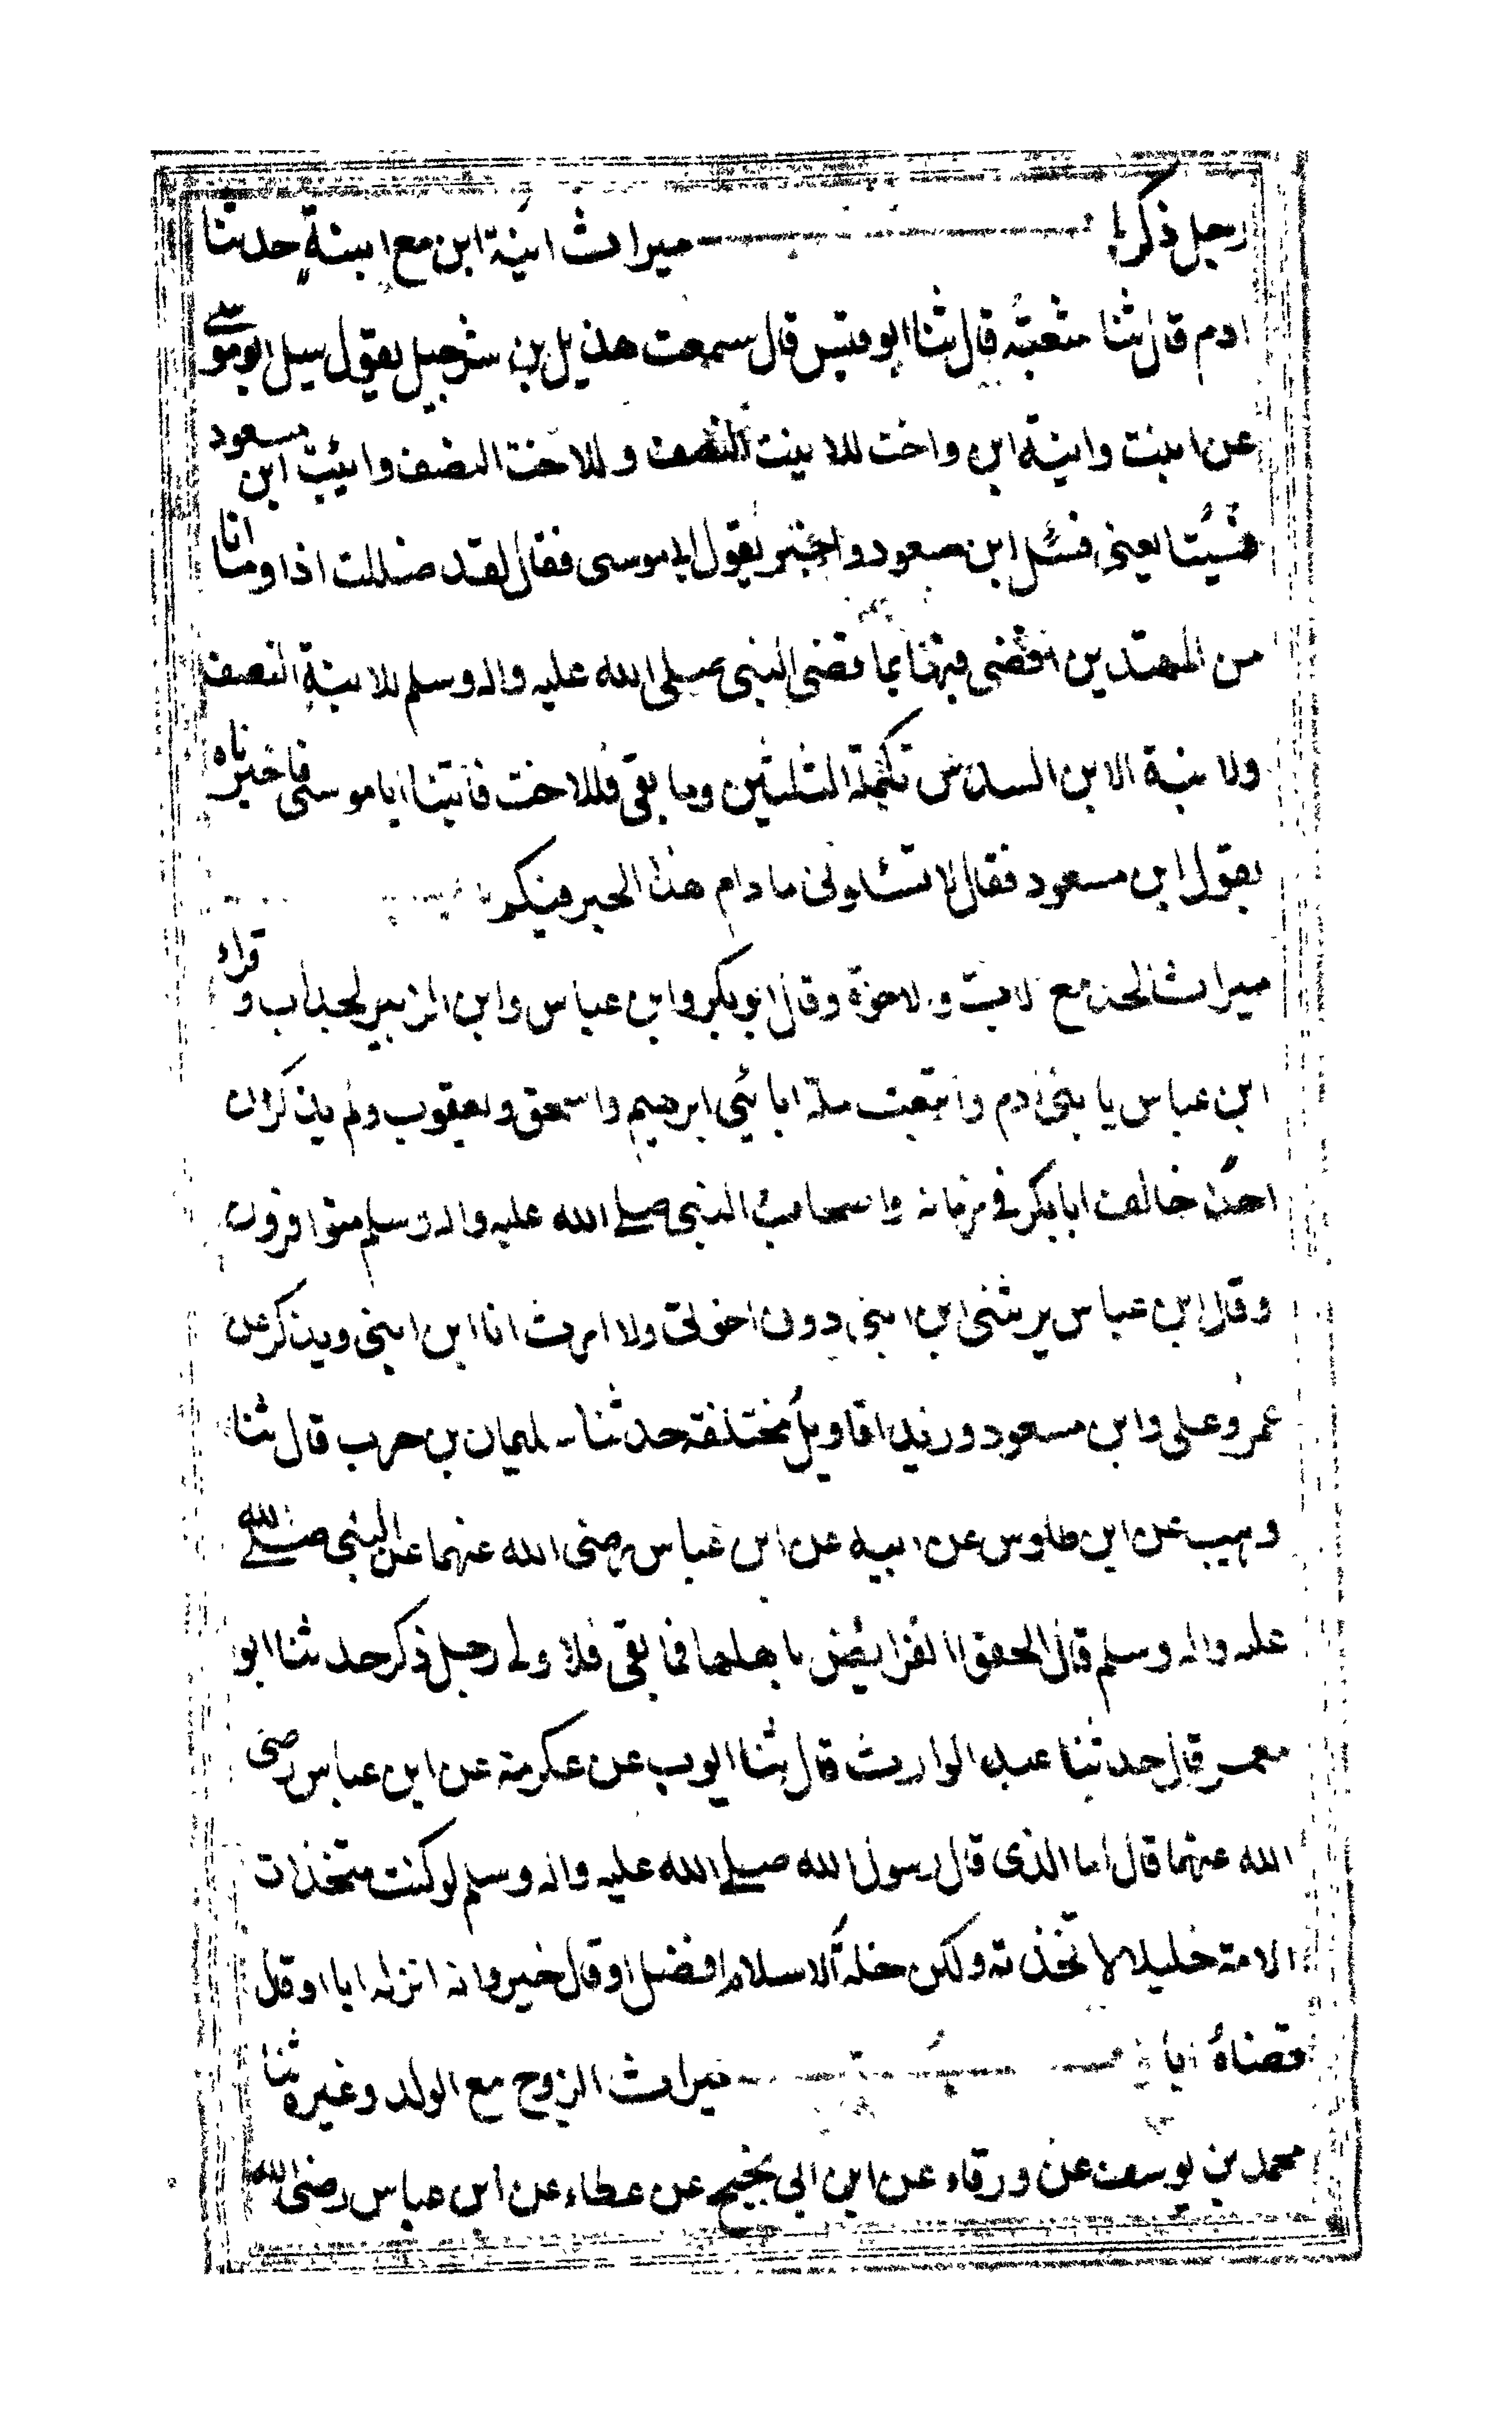 رجل ذكر ميراث ابنة ابن مع ابنة حدثنا
ادم قال ثنا شعبة قال ثنا ابو قيس قال سمعت هذيل بن شرحبيل يقول سيل ابو موسى
عن ابنت وابنة ابن واخت للابنت النصف وللاخت النصف وائت ابن مسعود
فسيتابعنى فسئل ابن مسعود واخبر بقول ابى موسى فقال لقد ضللت اذا وما انا
من المهتدين اقضى فيها بما قضى النبى صلى الله عليه واله وسلم للابنة النصف
ولابنة الابن السدس تكملة الثلثين وما بقى فللاخت فاتينا ابا موسى فاخبرناه
بقول ابن مسعود فقال لا تسئلونى ما دام هذا الحبر فيكم
ميراث الجد مع الاب والاخوة وقال ابو بكر وابن عباس وابن الزبير الجد اب وقراء
ابن عباس يا بنى ادم واتبعت ملة ابائى ابرهيم واسحق ويعقوب ولم يذكر ان
احدا خالف ابا بكر فى زمانه واصحاب النبى صلى الله عليه واله وسلم متوافرون
وقال ابن عباس يرثنى ابن ابنى دون اخوتى ولا ارث انا ابن ابنى ويذكر عن
عمر وعلى وابن مسعود وزيد اقاويل مختلفة حدثنا سليمان بن حرب قال ثنا
وهيب عن ابن طاوس عن ابيه عن ابن عباس رضى الله عنهما عن النبى صلى الله
عليه واله وسلم قال الحقوا الفرايض باهلها فما بقى فلاولى رجل ذكر حدثنا ابو
معمر قال حدثنا عبد الوارث قال ثنا ايوب عن عكرمة عن ابن عباس رضى
الله عنهما قال اما الذى قال رسول الله صلى الله عليه واله وسلم لو كنت متخذا من
الامة خليلا لاتخذته ولكن خلة الاسلام افضل او قال خير وانه انزله ابا او قال
قضاه ابا ميراث الزوج مع الولد وغيره ثنا
محمد بن يوسف عن ورقاء عن ابن ابى نجيح عن عطاء عن ابن عباس رضى الله